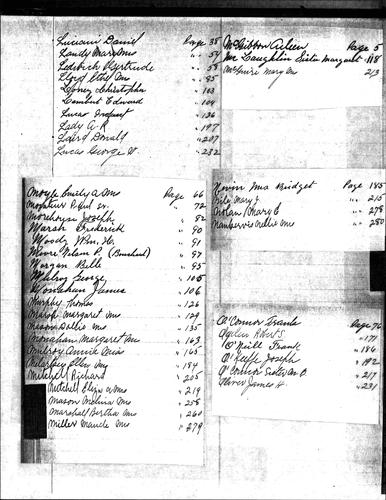 Luciani Daniel Page 38
Landy Mary Mrs " 54
Ledwick Gertrude " 58
Lloyd Ethel Mrs " 85
Looney Christopher " 103
Lambert Edward " 104
Lucas Infant " 136
Lady A. R. " 197
Laird Donald " 207
Lucas George W. " 232
McGibbon Aileen Page 5
McLaughlin Sister Margaret " 118
McGuire Mary Mrs 213
Moyle Emily A Mrs Page 66
" 72
Morehouse Joseph " 82
Marsh Frederick " 90
Moody Wm. H. " 91
Moore Nelson P. " 97
Morgan Belle " 95
Mulroy George " 105
Monahan James " 106
Murphy Thomas " 126
Marsh Margaret Mrs " 129
Mason Dollie Mrs " 135
Monahan Margaret Mrs " 163
Mulroy Annie Miss " 165
Ellen Mrs " 184
Mitchell Richard " 205
Mitchell Eliza A Mrs " 219
Mason Melvina Mrs " 258
Marshall Bertha Mrs " 260
Miller Maude Mrs " 279
Nevin Mrs Bridget Page 185
Mary J " 215
Nolan Mary E " 278
Nellie Mrs " 280
O'Connor Frank Page 76
Ogden Robt S. " 171
O'Neill Frank " 186
O'Keefe Joseph " 192
O'Connor Sister M. C. " 217
James H. " 231